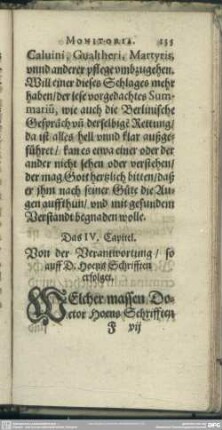 MONITORIA. 135
Caluini, Gualtheri, Martyris,
vnnd anderer pflege vmbzugehen.
Will einer dieses Schlages mehr
haben/ der lese vorgedachtes Sum-
mariũ, wie auch die Berlinische
Gespräch vñ derselbigẽ Rettung/
da ist alles hell vnnd klar außge-
führet/ kan es etwa einer oder der
ander nicht sehen oder verstehen/
der mag Gott hertzlich bitten/ daß
er jhm nach seiner Güte die Au-
gen auffthun/ vnd mit gesundem
Verstandt begnaden wolle.
Das IV. Capitel.
Von der Verantwortung/ so
auff D. Hoens Schrifften
erfolget.
WElcher massen Do-
ctor Hoens Schrifften
vij